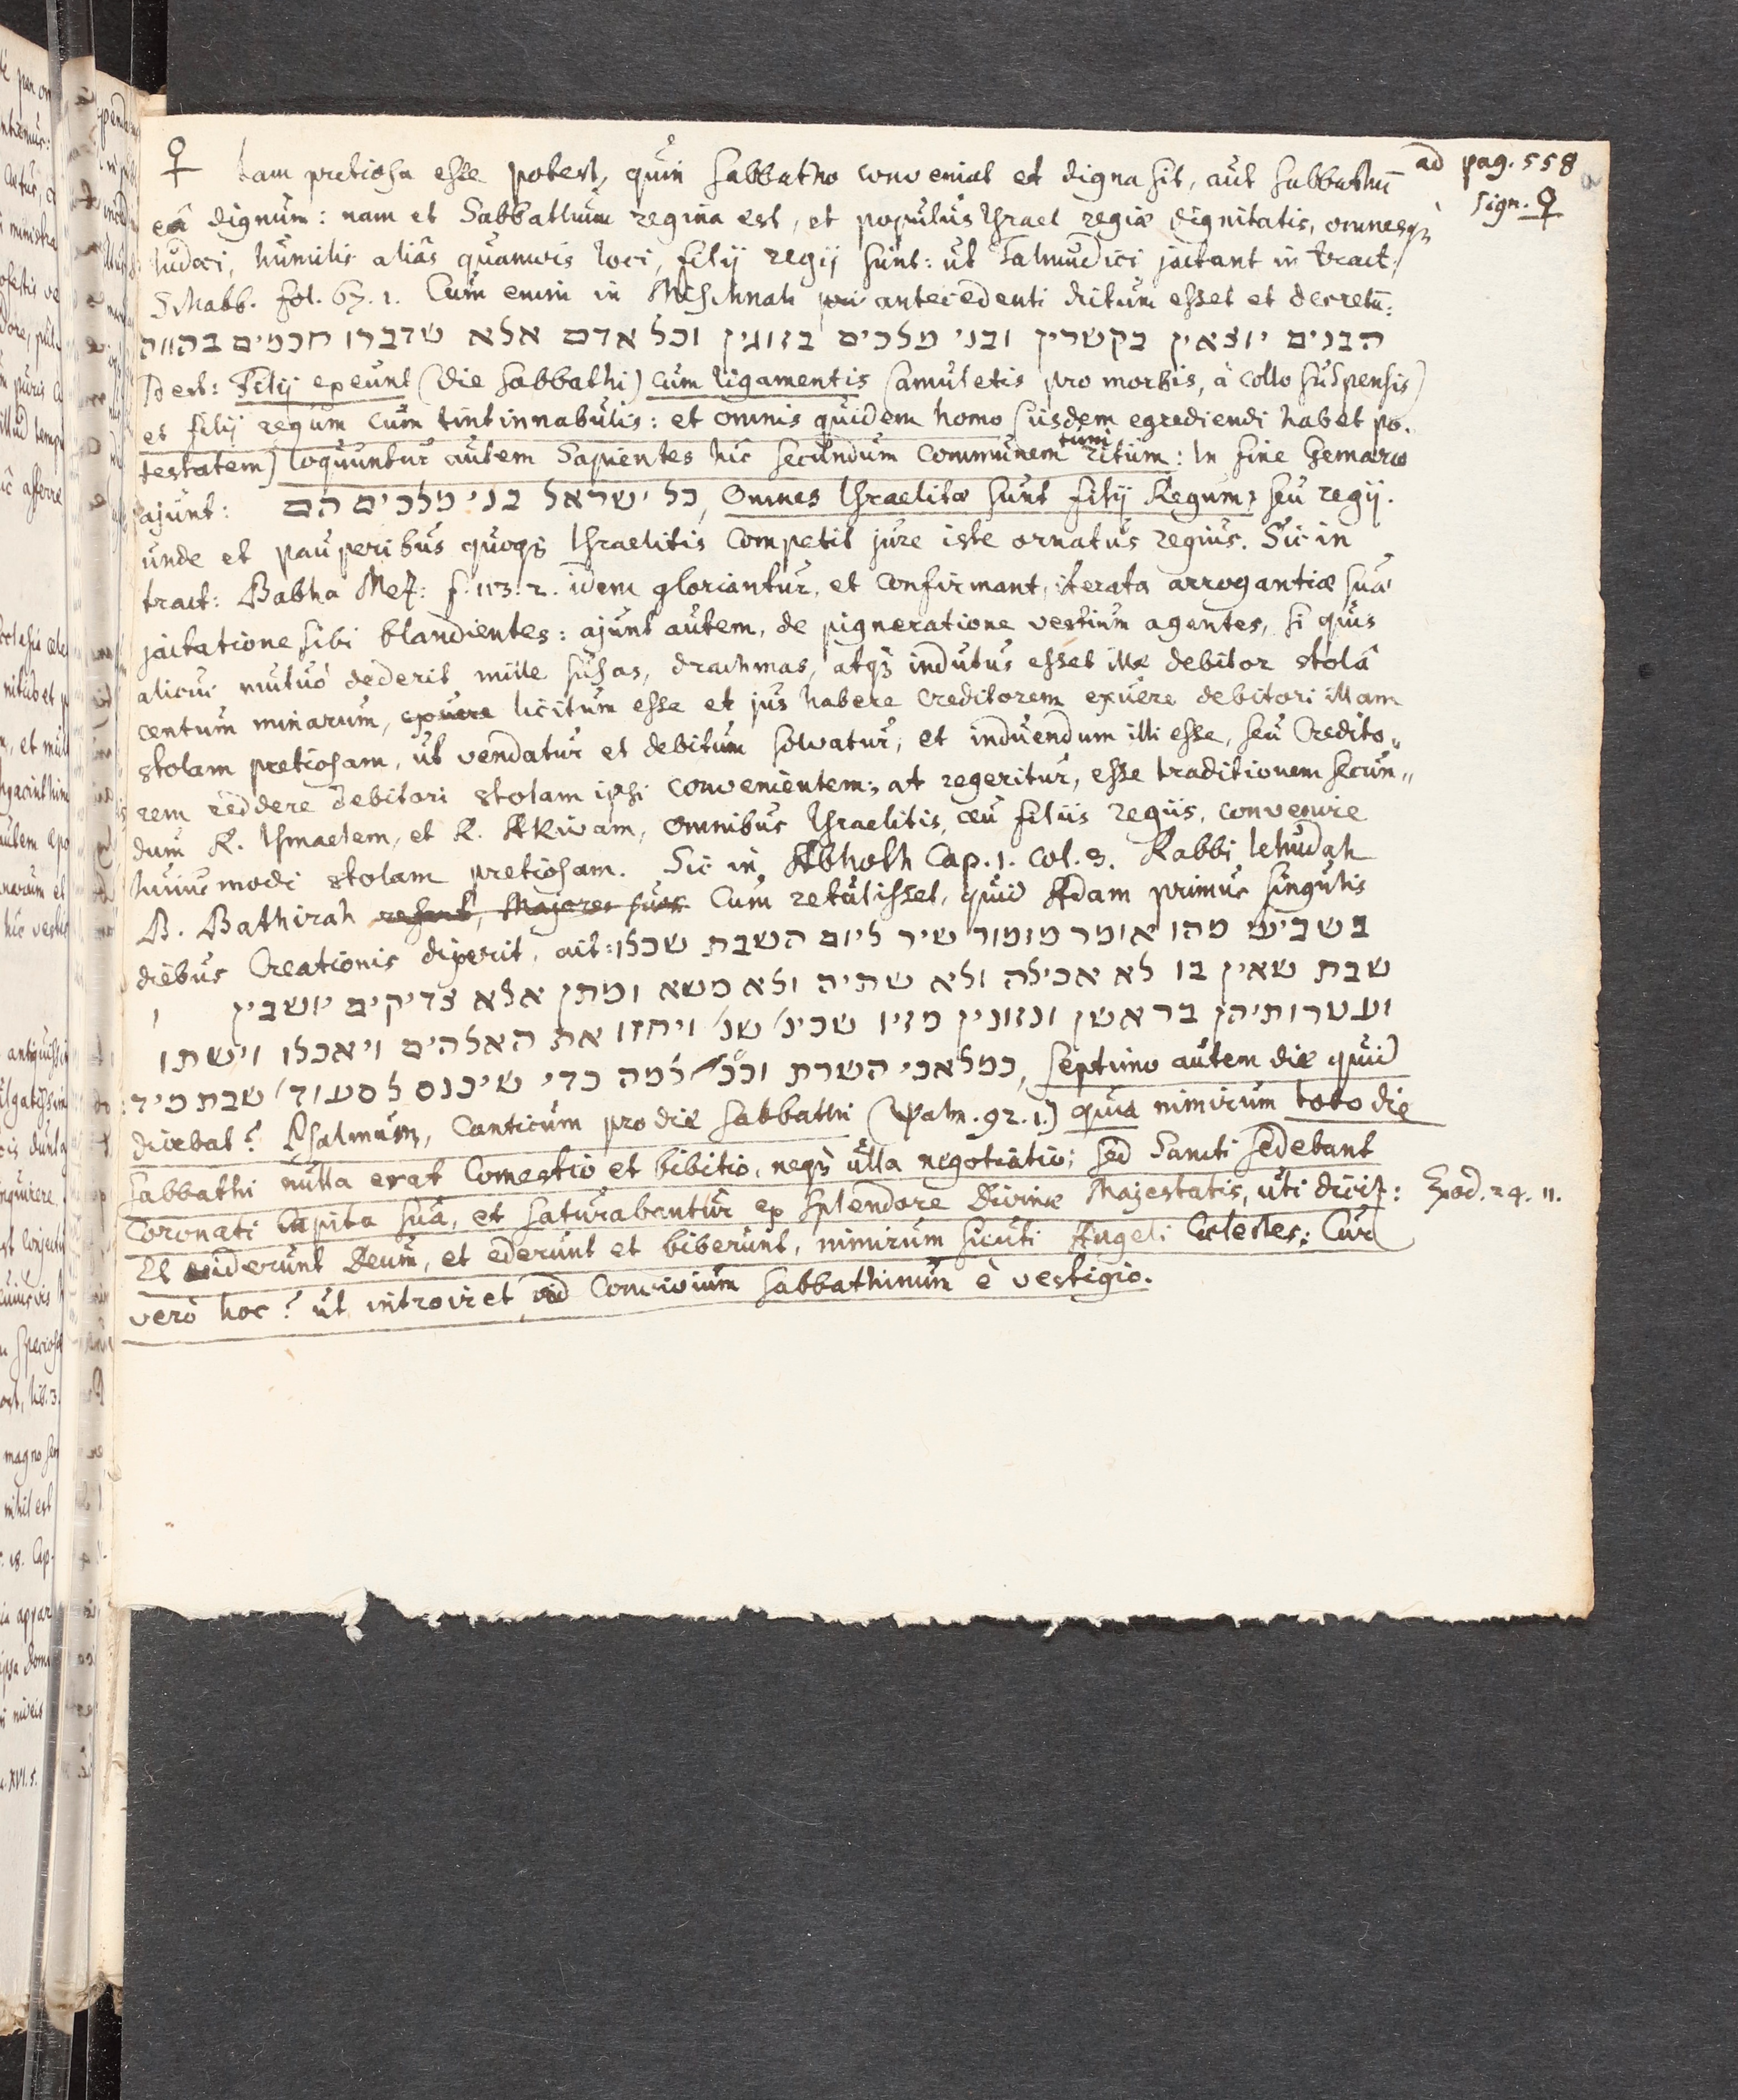 ♀ tam pretiosa esse potest, quin Sabbatho conveniat et digna sit, aut Sabbathū
eâ dignum: nam et Sabbathum regina est, et populus Israel regiæ dignitatis, omnesq́ꝫ
Iudæi, humilis aliàs quamvis loci, filij regij sunt: ut Talmudici jactant in tract.
Schabb. fol. 67. 1. Cum enim in Mischnah antecedenti dictum esset et decretū:
הבנים יוצאין בקשרין ובני מלכים בזוגין וכל אדם אלא שדברו חכמים בהווה
Id est: Filij exeunt (die Sabbathi) cum ligamentis (amuletis pro morbis, à collo suspensis)
et filij regum cum tintinnabulis: et omnis quidem homo (iisdem egrediendi habet po-
testatem) loquuntur autem Sapientes hic secundum communem tum ritum: In fine Gemaræ
ajunt: כל ישראל בני מלכים הם, Omnes Israelitæ sunt filij Regum, seu regij.
unde et pauperibus quoqꝫ Israelitis competit jure iste ornatus regius. Sic in
tract: Babha Mez: f. 113. 2. idem gloriantur, et confirmant, iterata arrogantiæ suæ
jactatione sibi blandientes: ajunt autem, de pigneratione vestium agentes, si quis
alicui mutuò dederit mille susas, drachmas, atqꝫ indutus esset ille debitor stolâ
centum minarum, exuere licitum esse et jus habere creditorem exuere debitori illam
stolam pretiosam, ut vendatur et debitum solvatur, et induendum illi esse, seu Credito„
rem reddere debitori stolam ipsi convenientem; at regeritur, esse traditionem secun„
dum R. Ismaelem, et R. Akivam, omnibus Israelitis, ceu filiis regiis, convenire
huiusmodi stolam pretiosam. Sic in Abhoth Cap. 1. col. 3. Rabbi Iehudah
B. Bathirah Majores suos Cum retulisset, quid Adam primus singulis
diebus Creationis dixerit, ait: בשביעי מהו אומר מזמור שיר ליום השבת שכלו
שבת שאין בו לא אכילה ולא שתיה ולא משא ומתן אלא צדיקים יושבין
ועטרותיהן בראשן ונזונין מזיו שכינ׳ שנ׳ ויחזו את האלהים ויאכלו וישתו
כמלאכי השרת וכל למה כדי שיכנס לסעוד׳ שבת מיד: Septimo autem die quid
dicebat? Psalmum, Canticum pro die Sabbathi (Psalm. 92. 1.) quia nimirum toto die
Sabbathi nulla erat Comestio et bibitio, neqꝫ ulla negotiatio; sed Sancti sedebant
Coronati Capita sua, et saturabantur ex splendore Divinæ Majestatis, uti dicit:
Et viderunt Deum, et ederunt et biberunt, nimirum sicuti Angeli Cœlestes; Cur
verò hoc? ut introiret ad Convivium Sabbathinum è vestigio.
ad pag. 558
sign. ♀
Exod. 24. 11.